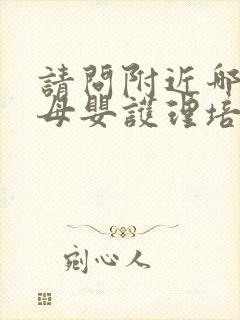 請問附近哪
母嬰護理培
剜心人